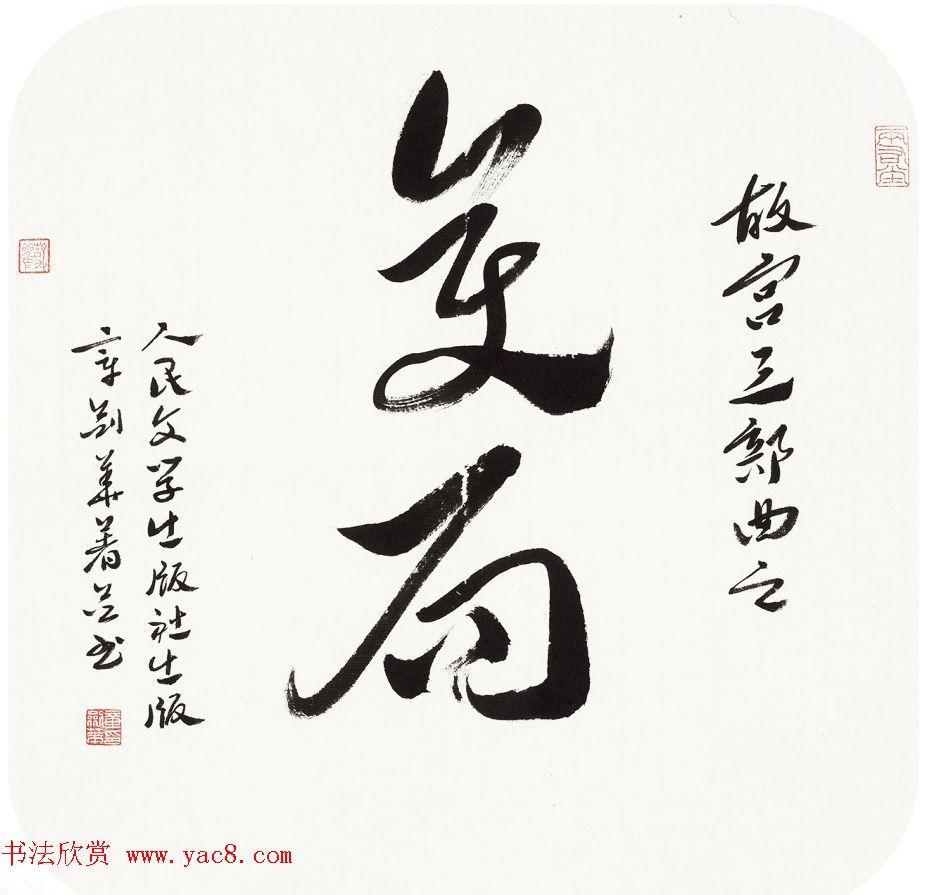 故宫三部曲之
变局
人民文学出版社出版
章剑华著并书
书法欣赏 www.yac8.com